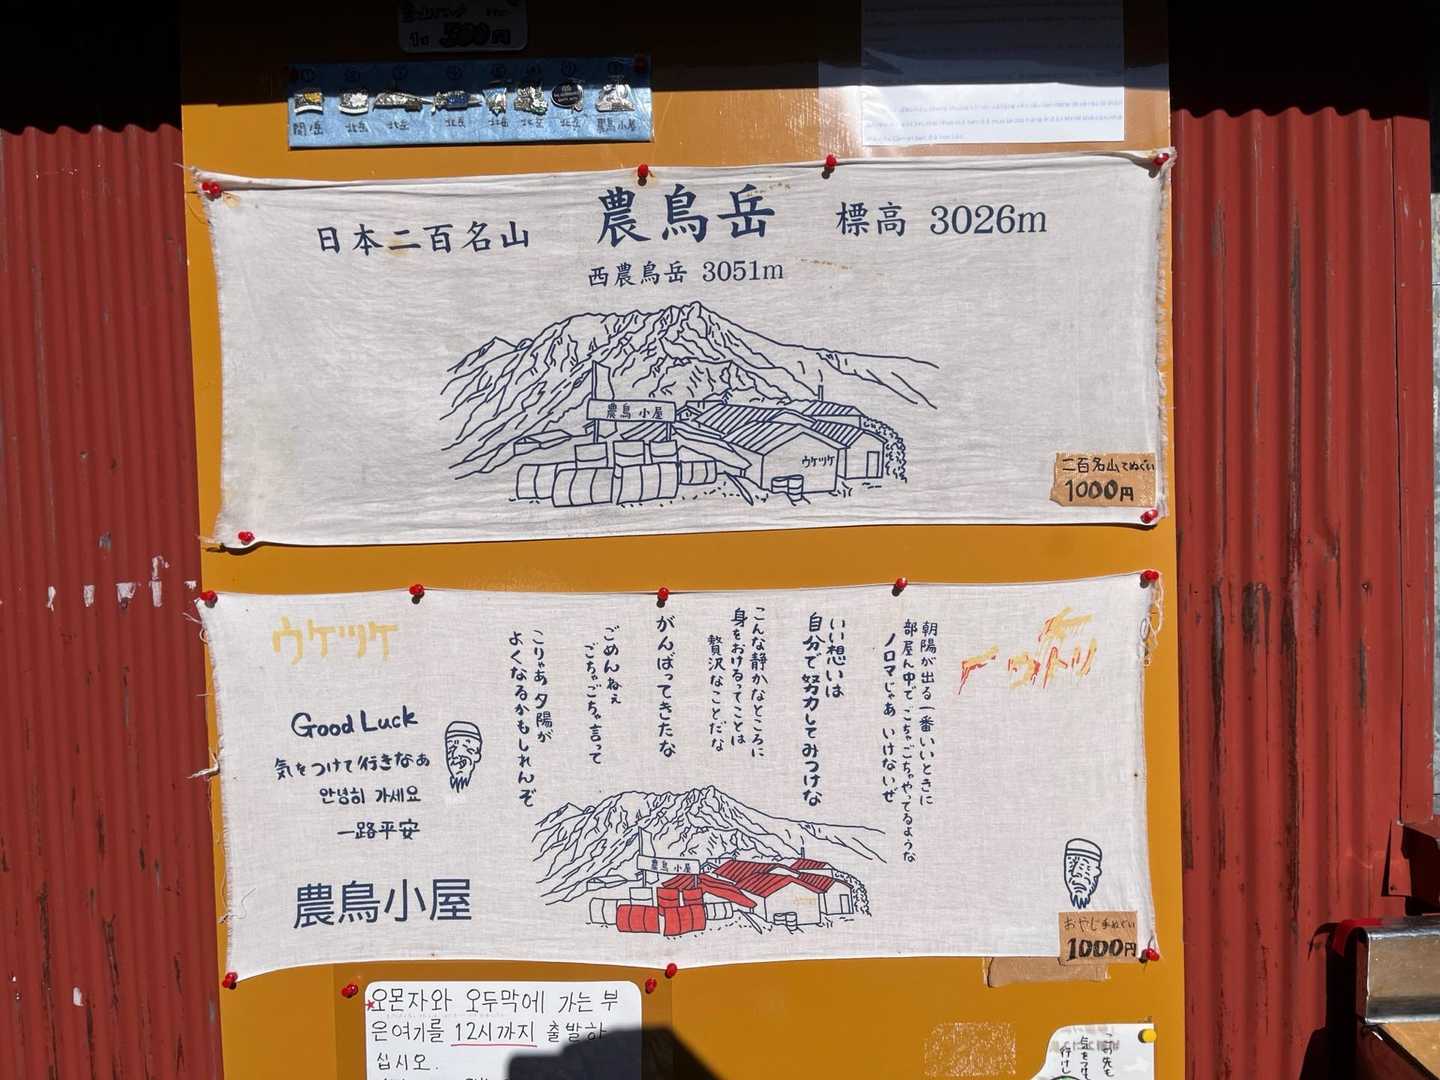 1コ 500円
間ノ岳
北岳
北岳
北岳
北岳
北岳
北岳
農鳥小屋
日本二百名山
農鳥岳
標高 3026m
西農鳥岳 3051m
農鳥小屋
ウケツケ
二百名山てぬぐい
1000円
ウケツケ
Good Luck
気をつけて行きなぁ
안녕히 가세요
一路平安
農鳥小屋
朝陽が出る一番いいときに
部屋ん中でごちゃごちゃやってるような
ノロマじゃあ いけないぜ
いい想いは
自分で努力してみつけな
こんな静かなところに
身をおけるってことは
贅沢なことだな
がんばってきたな
ごめんねぇ
ごちゃごちゃ言って
こりゃあ夕陽が
よくなるかもしれんぞ
農鳥小屋
おやじ手ぬぐい
1000円
오몬자와 오두막에 가는 부
은여기를 12시까지 출발하
십시오.
この先も
気をつけて
行けし